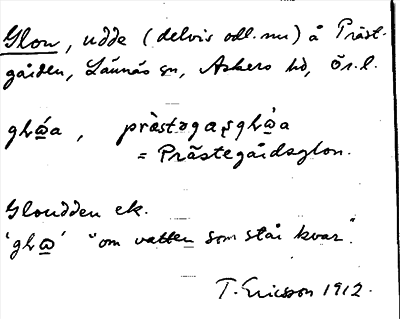 Glon, udde (delvis odl. nu) å Präst-
gården, Lännäs sn, Askers hd, Ör. l.
prästəgaṣglὼa
= Prästegårdsglon.
Gloudden ek.
"om vatten som står kvar".
T. Ericsson 1912.